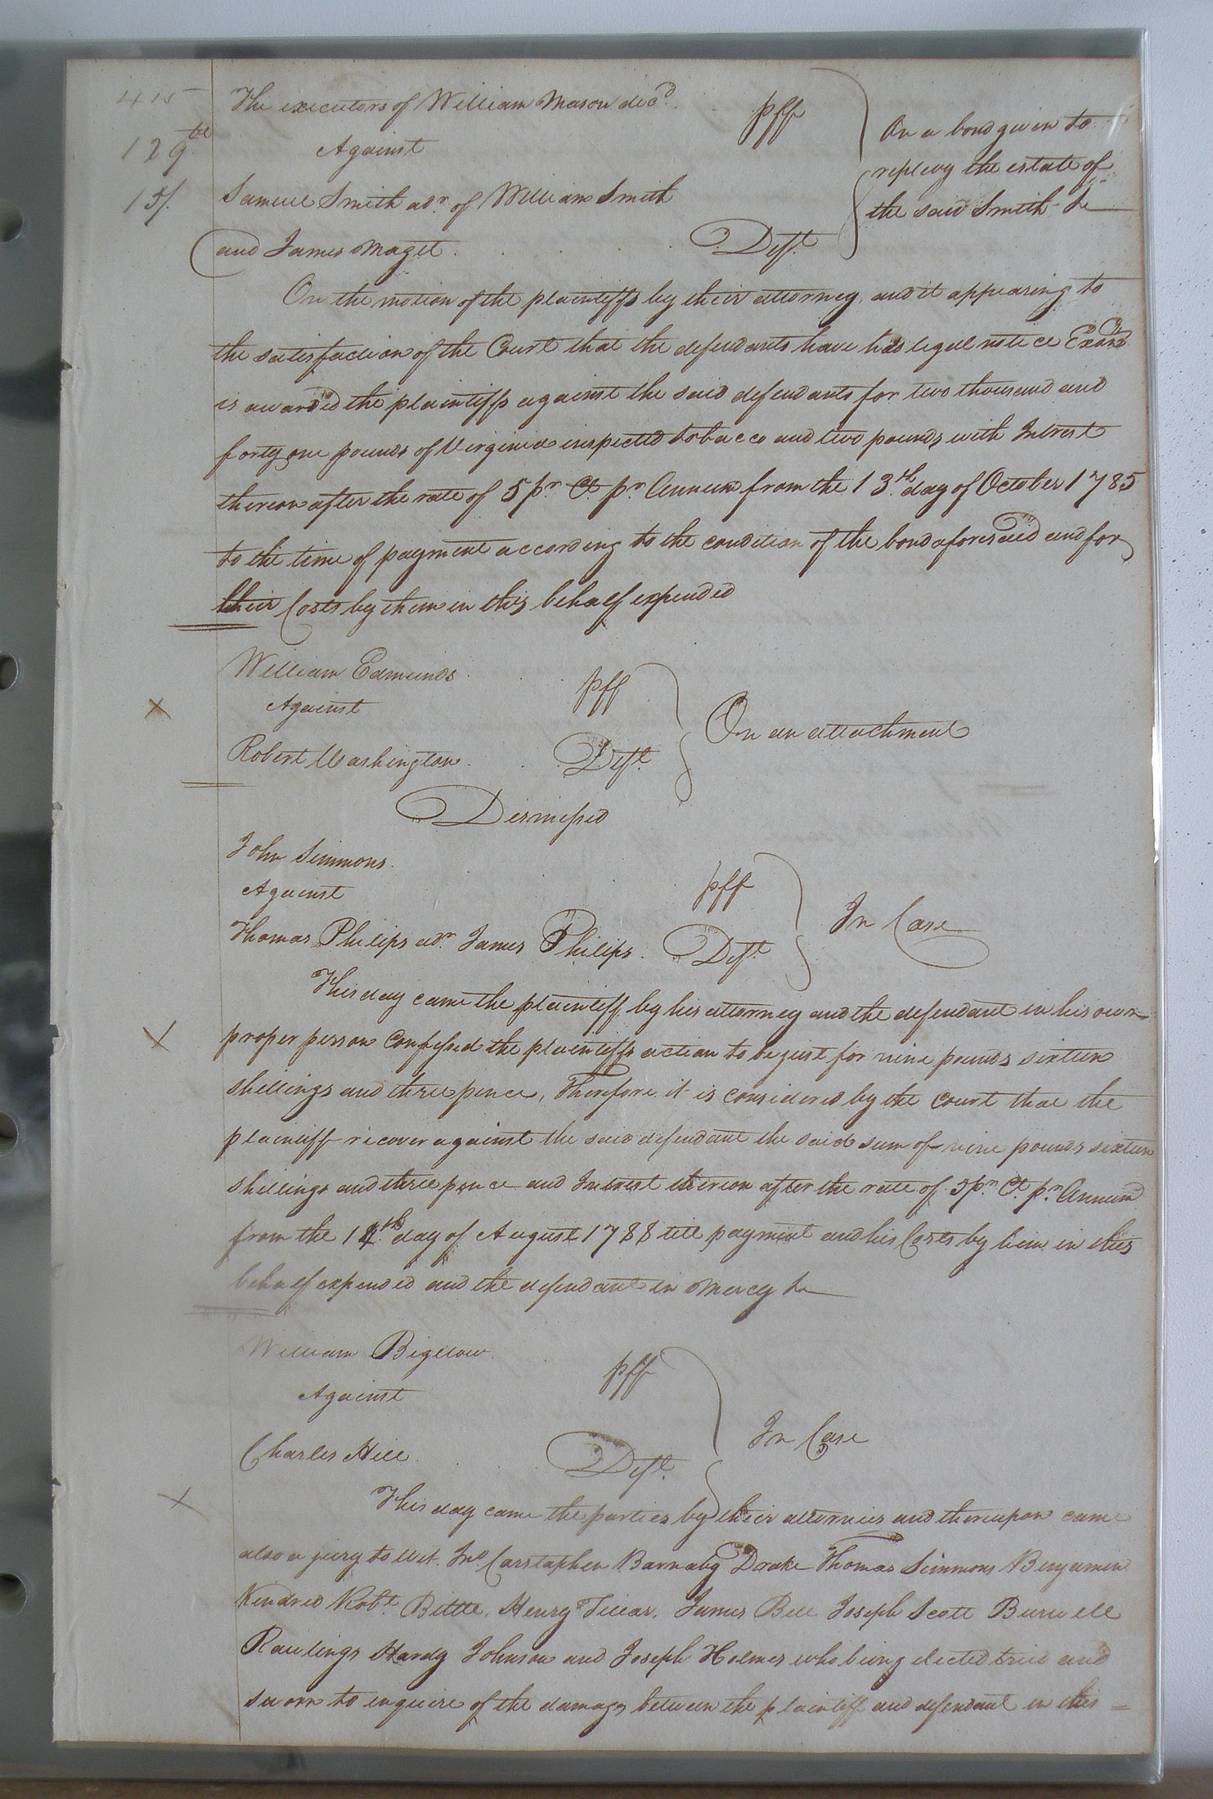 415
129 tb
15/.
The executors of William Mason decd. pff
Against
Samuel Smith adr. of William Smith
and James Maget. Deft.
On a bond given to
replevy the estate of
the said Smith &c
On the motion of the plaintiffs by their attorney and it appearing to
the satisfaction of the Court that the defendants have had legal notice Exon
is awarded the plaintiffs against the said defendants for two thousand and
forty one pounds of Virginia inspected tobacco and two pounds with Intrest
thereon after the rate of 5 pr. Ct. pr. Annum from the 13th. day of October 1785
to the time of payment according to the condition of the bond aforesaid and for
their Costs by them in this behalf expended
William Edmunds pff
Against
Robert Washington Deft.
On an attachment
Dismissed
John Simmons pff
Against
Thomas Philips adr. James Philips. Deft.
In Case
This day came the plaintiff by his attorney and the defendant in his own
proper person confessed the plaintiffs action to be just for nine pounds sixteen
shillings and three pence, Therefore it is considered by the court that the
plaintiff recover against the said defendant the said sum of nine pounds sixteen
shillings and three pence and Intrest thereon after the rate of 5 pr. Ct. pr. Annum
from the day of August 1788 till payment and his Costs by him in this
behalf expended and the defendant in Mercy &c
William Bigelow pff
Against
Charles Hill Deft.
In Case
This day came the parties by their attornies and thereupon came
also a jury to wit. Jno. Carstaphen Barnaby Drake Thomas Simmons Benjamin
Kindred Robt. Bittle, Henry Tillar, James Bell Joseph Scott Burwell
Rawlings Hardy Johnson and Joseph Holmes who being elected tried and
sworn to enquire of the damages between the plaintiff and defendant in this =